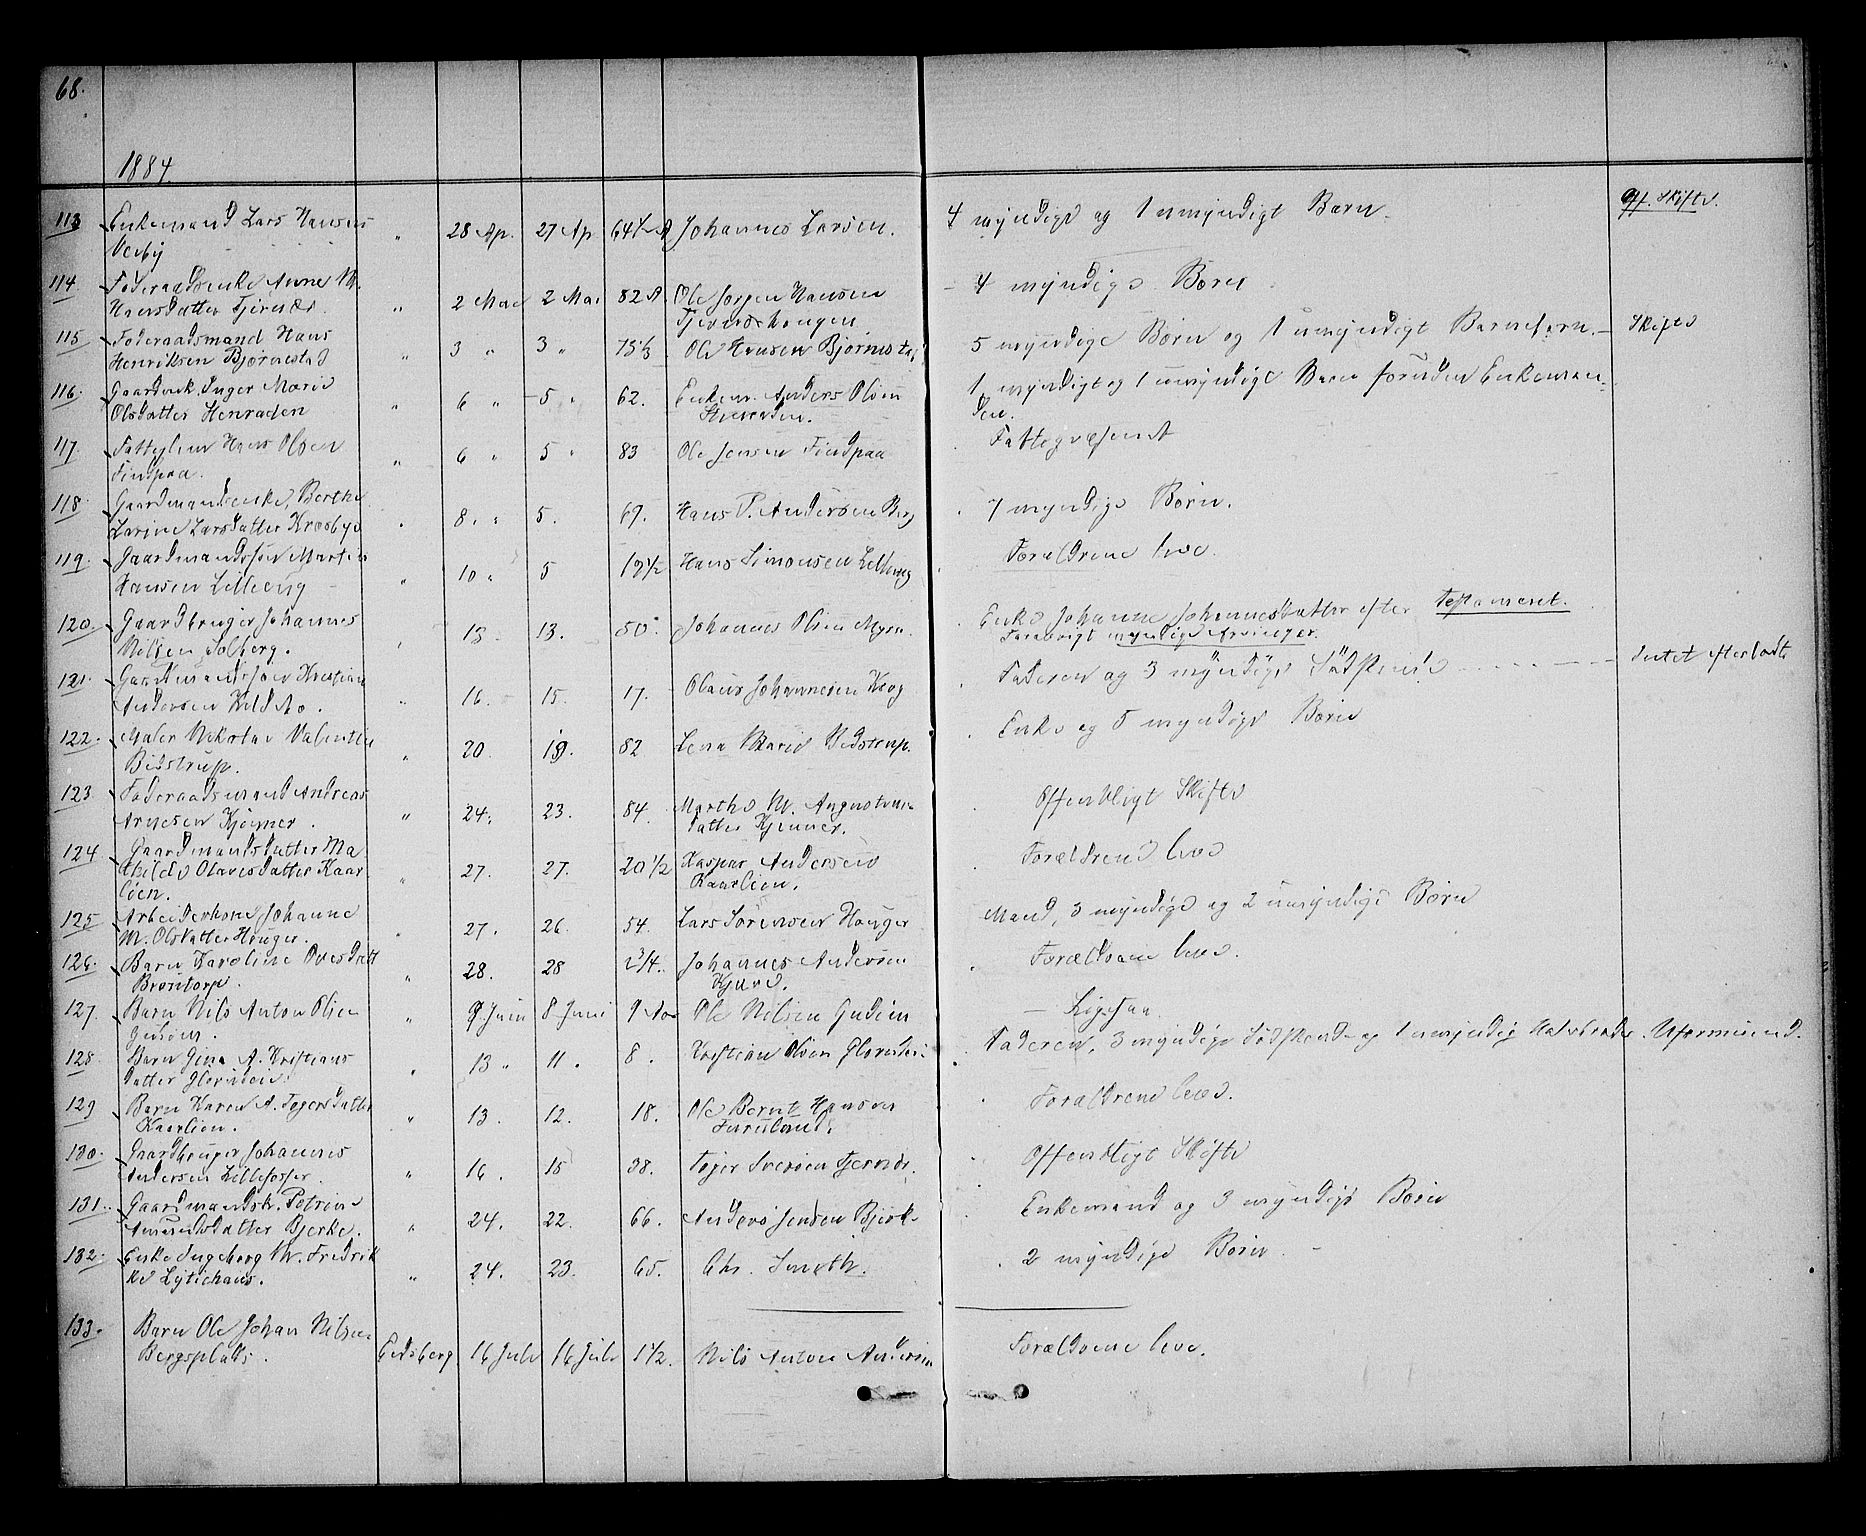 68.
1884.
113 Enkemand Lars Hansen " 28 Ap. 27 Ap 64½ A Johannes Larsen. 4 myndige og 1 umyndigt Barn. Off. Skifte
Verby
114 Føderaadsenke Anne M. " 2 Mai 2 Mai 82 A. Ole Jørgen Hansen - 4 myndige Børn
Hansdatter Tjernæs. Tjernæshaugen.
115 Føderaadsmand Hans " 3 " 3 " 75⅓ Ole Hansen Bjørnestad 5 myndige Børn og 1 umyndigt Barnebarn. - Skifte
Henriksen Bjørnestad
116. Gaardmk. Inger Marie " 6 " 5 " 62. Enkem. Anders Olsen 1 myndigt og 1 umyndige Barn foruden Enkeman-
Olsdatter Henraden den.
117. Fattiglem Hans Olsen " 6 " 5 " 83 Ole Jensen Findspaa Fattigvæsenet
Findspaa.
118. Gaardmandsenke, Berthe " 8. " 5. 69. Hans P. Andersen Berg 7 myndige Børn.
Larine Larsdatter Kresbye
119. Gaardmandssøn Martin " 10 " 5 19½ Hans Simonsen Lilleeng Forældrene leve.
Hansen Lilleeng
120. Gaardbruger Johannes " 15 13. 50 Johannes Olsen Myra. Enke Johanne Johannesdatter efter Testament.
Nilsen Solberg. Forøvrigt myndige Arvinger.
121. Gaardmandssøn Kristian " 16. 15. 17. Olaus Johannesen Krog Faderen og 3 myndige Sødskende - - - Intet efterladt
Andersen Kildebo.
122. Maler Nikolai Valentin " 20 19. 82 Lena Marie Bidstrup. Enke og 5 myndige Børn
Bidstrup.
123 Føderaadsmand Andreas " 24. 23. 84. Marthe M. Augustinus- Offentligt Skifte
Arnesen Kjønner. datter Kjønner.
124 Gaardmandsdatter Ma " 27. 27. 20½ Kaspar Andersen Forældrene leve
thilde Olavesdatter Kaar- Kaarlien.
lien.
125 Arbeiderkone Johanne " 27. 26. 54. Lars Sørensen Houger Mand, 3 myndige og 2 umyndige Børn
M. Olsdatter Houger.
126. Barn Karoline Ovesdatt " 28. 28 2¾. Johannes Andersen Forældrene leve.
Brøntorp.
127. Barn Nils Anton Olsen " 9 Juni 8 Juni 9 Ole Nilsen Gudim - Ligesaa.
128. Barn Gina A. Kristians " 13 " 11 " 8. Kristian Olsen Faderen, 3 myndige Sødskende og 1 umyndig Halvbroder. Uformuend.
datter
129 Barn Karen A. Tøgersdatter " 13. 12. 18. Ole Bernt Hansen Forældrene leve.
Kaarlien. Furulund.
130. Gaardbruger Johannes " 16. 15 38. Tøger Iversen Tjernæs. Offentligt Skifte
Andersen Lillefosser.
131. Gaardmandsk. Petrine " 24. 22. 66. Anders Jensen Bjerke Enkemand og 3 myndige Børn
Amundsdatter Bjerke.
132. Enke Ingeborg M. Fredrik " 24. 23. 65. Chr. Smeth. 2 myndige Børn. -
ke
133. Barn Ole Johan Nilsen Eidsberg 16 Juli 16 Juli 1½. Nils Anton Andersen Forældrene leve.
Bergsplads.